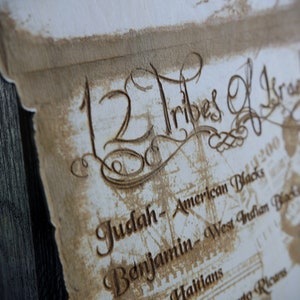 12 Tribes Of Israe
Judah - American Blacks
Benjamin - West Indian Blacks
Haitians
Puerto Ricans